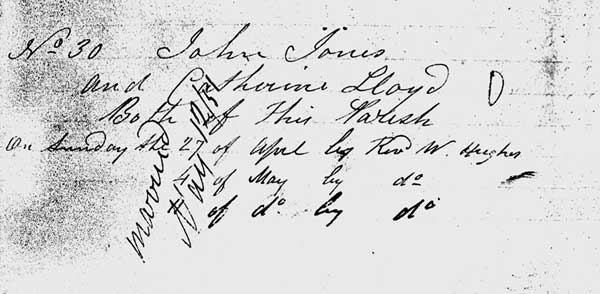 No 30 John Jones
and Catherine Lloyd
Both of this Parish
On Sunday the 27 of April by Revd W. Hughes
of May by do
of do by do
married
May